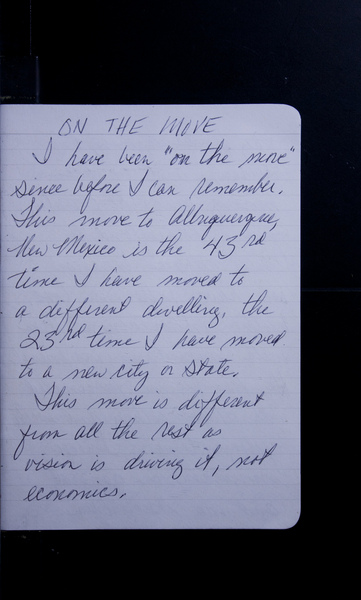 ON THE MOVE
I have been "on the move"
since before I can remember.
This move to Albuquerque,
New Mexico is the 43rd
time I have moved to
a different dwelling, the
23rd time I have moved
to a new city or state.
This move is different
from all the rest as
vision is driving it, not
economics.